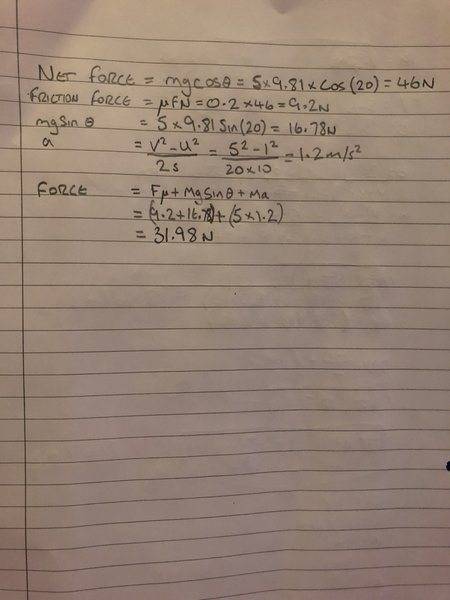 NET FORCE = mgcosθ = 5×9.81×Cos(20) = 46N
FRICTION FORCE = μFN = 0.2×46 = 9.2N
mgSin θ = 5×9.81 Sin(20) = 16.78N
a = V²-U²/2s = 5²-1²/20×10 = 1.2m/s²
FORCE = Fμ + MgSinθ + Ma
= (9.2+16.78) + (5×1.2)
= 31.98N